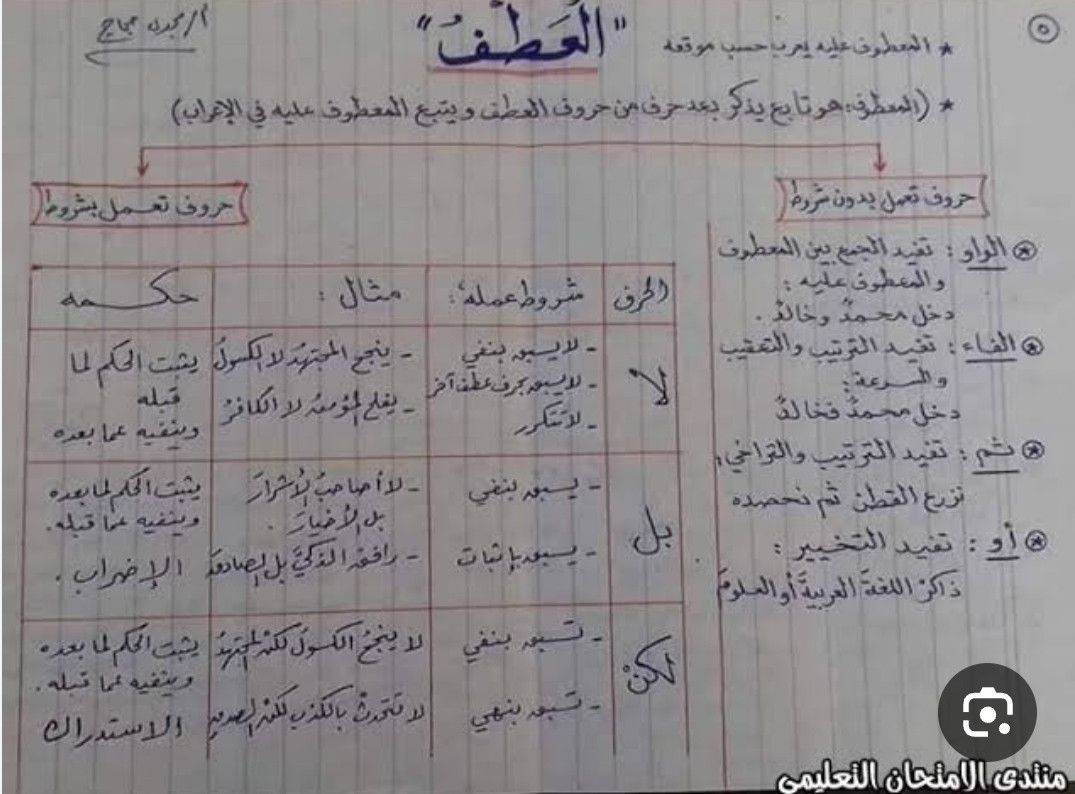 ٥
* المعطوف عليه يعرب حسب موقعه
"العَطْفُ"
أ/ مجدى
* (المعطوف: هو تابع يذكر بعد حرف من حروف العطف ويتبع المعطوف عليه في الإعراب)
حروف تعمل بدون شروط
حروف تعمل بشروط
الواو: تفيد الجمع بين المعطوف
والمعطوف عليه:
دخل محمدٌ وخالدٌ.
الفاء: تفيد الترتيب والتعقيب
والسرعة:
دخل محمدٌ فخالدٌ
ثم: تفيد الترتيب والتراخي:
نزرع القطن ثم نحصده
أو: تفيد التخيير:
ذاكرْ اللغةَ العربيةَ أو العلومَ
الحرف
شروط عمله:
مثال:
حكمه
لا
- لا يسبق بنفي
- لا يسبق بحرف عطف آخر
- لا تتكرر
- ينجح المجتهدُ لا الكسولُ
- يفلح المؤمنُ لا الكافرُ
يثبت الحكم لما
قبله
وينفيه عما بعده
بل
- يسبق بنفي
- يسبق بإثبات
- لا أصاحبُ الأشرارَ
بل الأخيارَ.
- رافق الذكيَّ بل الصادقَ
يثبت الحكم لما بعده
وينفيه عما قبله.
الإضراب.
لكنْ
- تسبق بنفي
- تسبق بنهي
لا ينجحُ الكسولُ لكنْ المجتهدُ
لا تتحدثْ بالكذبِ لكنْ الصدقِ
يثبت الحكم لما بعده
وينفيه عما قبله.
الاستدراك
منتدى الامتحان التعليمى